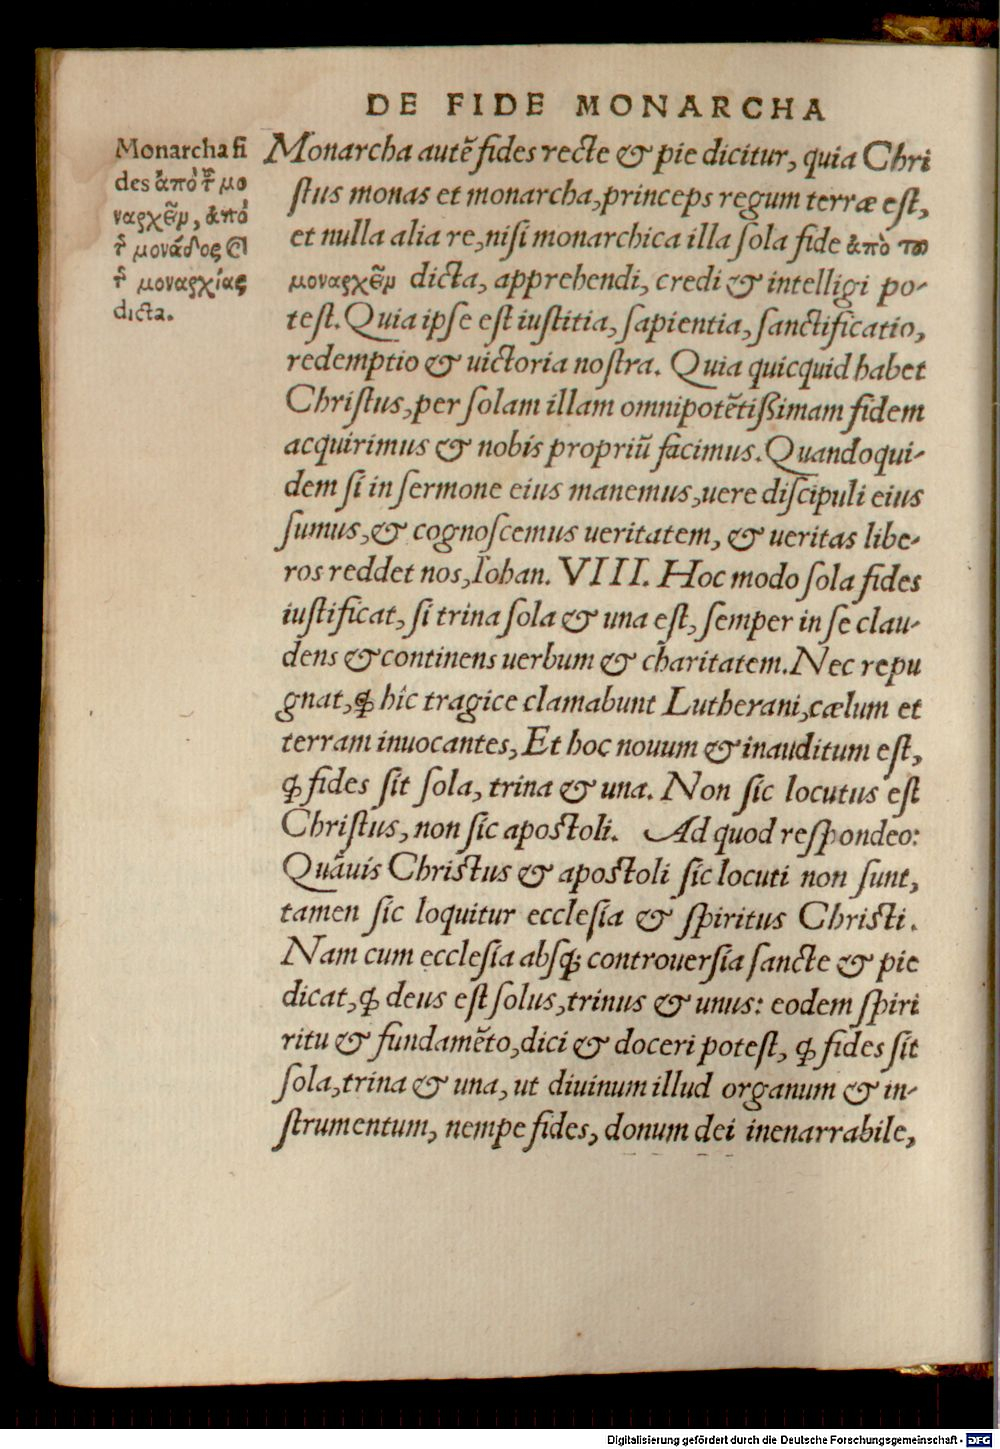 DE FIDE MONARCHA
Monarcha fi
des ἀπὸ τ̃ μο
ναρχεῖν, ἀπὸ
τ̃ μονάδος ϗ
τ̃ μοναρχίας
dicta.
Monarcha autẽ fides recte & pie dicitur, quia Chri
ſtus monas et monarcha, princeps regum terræ eſt,
et nulla alia re, niſi monarchica illa ſola fide ἀπὸ τοῦ
μοναρχεῖν dicta, apprehendi, credi & intelligi po-
teſt. Quia ipſe eſt iuſtitia, ſapientia, ſanctificatio,
redemptio & uictoria noſtra. Quia quicquid habet
Chriſtus, per ſolam illam omnipotẽtißimam fidem
acquirimus & nobis propriũ facimus. Quandoqui-
dem ſi in ſermone eius manemus, uere diſcipuli eius
ſumus, & cognoſcemus ueritatem, & ueritas libe-
ros reddet nos, Iohan. VIII. Hoc modo ſola fides
iuſtificat, ſi trina ſola & una eſt, ſemper in ſe clau-
dens & continens uerbum & charitatem. Nec repu
gnat, ꝙ hîc tragice clamabunt Lutherani, cælum et
terram inuocantes, Et hoc nouum & inauditum eſt,
ꝙ fides ſit ſola, trina & una. Non ſic locutus eſt
Chriſtus, non ſic apoſtoli. Ad quod reſpondeo:
Quãuis Chriſtus & apoſtoli ſic locuti non ſunt,
tamen ſic loquitur eccleſia & ſpiritus Chriſti.
Nam cum eccleſia abſq; controuerſia ſancte & pie
dicat, ꝙ deus eſt ſolus, trinus & unus: eodem ſpiri
ritu & fundamẽto, dici & doceri poteſt, ꝙ fides ſit
ſola, trina & una, ut diuinum illud organum & in-
ſtrumentum, nempe fides, donum dei inenarrabile,
Digitalisierung gefördert durch die Deutsche Forschungsgemeinschaft - DFG